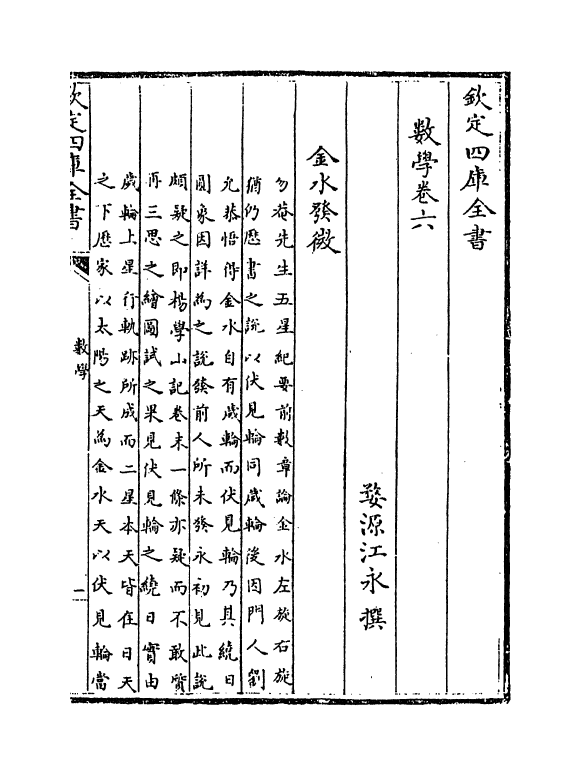 欽定四庫全書
數學卷六
婺源江永撰
金水發微
勿菴先生五星紀要前數章論金水左旋右旋
猶仍歷書之說以伏見輪同歲輪後因門人劉
允恭悟得金水自有歲輪而伏見輪乃其繞日
圓象因詳為之說發前人所未發永初見此說
頗疑之即楊學山記卷末一條亦疑而不敢質
再三思之繪圖試之果見伏見輪之繞日實由
歲輪上星行軌跡所成而二星本天皆在日天
之下歷家以太陽之天為金水天以伏見輪當
欽定四庫全書
數學
一